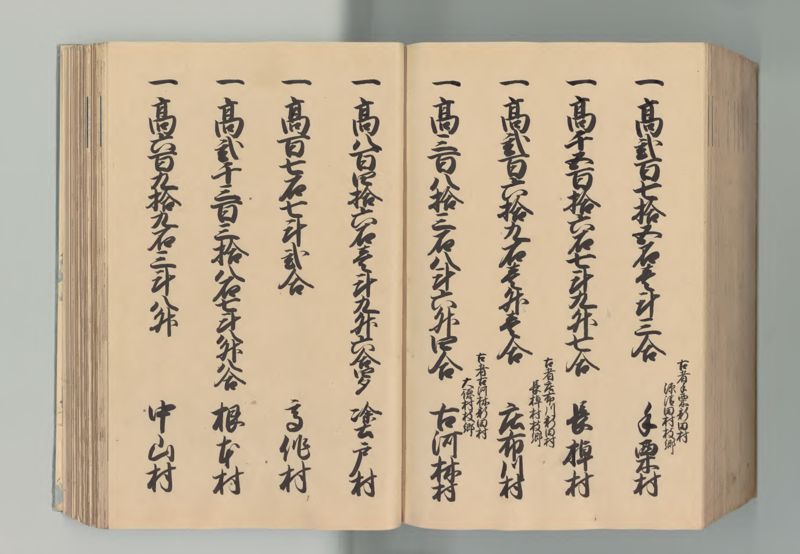 一 高弐百七拾五石壱斗三合
古者手栗新田村
源清田村枝郷
手栗村
一 高千五百拾六石七斗九升七合
長棹村
一 高弐百六拾九石壱升壱合
古者庄布川新田村
長棹村枝郷
庄布川村
一 高三百八拾三石八斗六升四合
古者古河林新田村
大徳村枝郷
古河林村
一 高八百四拾六石壱斗九升六合
塗戸村
一 高百七石七斗弐合
高作村
一 高弐千三百三拾八石七斗
升八合
根本村
一 高六百九拾九石三斗八升
中山村